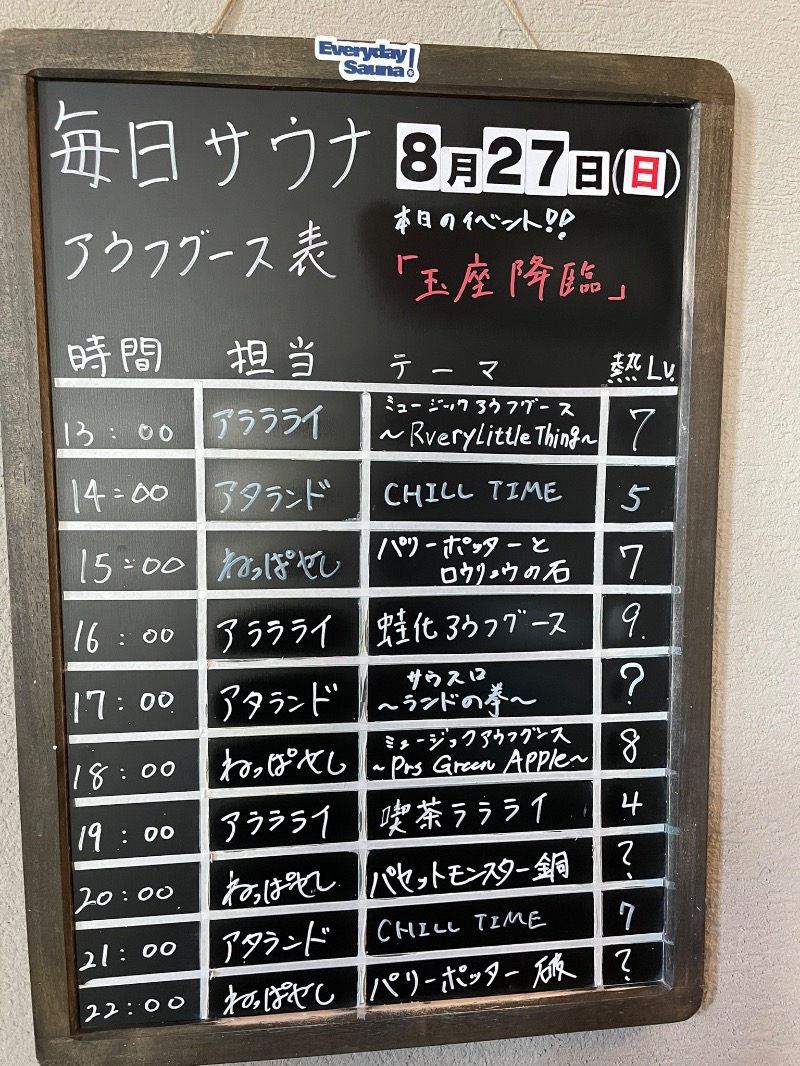 Everyday
Sauna!
毎日サウナ
8月27日(日)
アウフグース表
本日のイベント!!
「玉座降臨」
時間 担当 テーマ 熱Lv.
13:00 アララライ ミュージックアウフグース 7
～RveryLittleThing～
14:00 アタランド CHILL TIME 5
15:00 ねっぱせし パリーポッターと 7
ロウリュウの石
16:00 アララライ 蛙化アウフグース 9
17:00 アタランド サウスロ ?
～ランドの拳～
18:00 ねっぱせし ミュージックアウフグース 8
～Prs Green Apple～
19:00 アララライ 喫茶ラララィ 4
20:00 ねっぱせし パセットモンスター銅 ?
21:00 アタランド CHILL TIME 7
22:00 ねっぱせし パリーポッター 破 ?